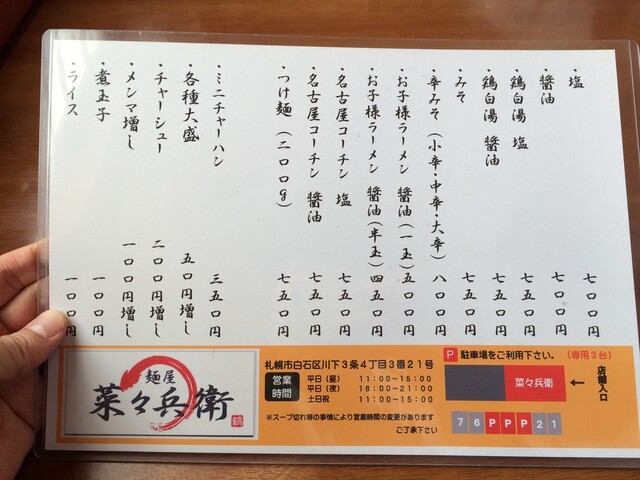 ・塩 七〇〇円
・醤油 七〇〇円
・鶏白湯 塩 七五〇円
・鶏白湯 醤油 七五〇円
・みそ 七五〇円
・辛みそ（小辛・中辛・大辛） 八〇〇円
・お子様ラーメン 醤油（一玉） 五〇〇円
・お子様ラーメン 醤油（半玉） 四五〇円
・名古屋コーチン 塩 七五〇円
・名古屋コーチン 醤油 七五〇円
・つけ麺（二〇〇g） 七五〇円
・ミニチャーハン 三五〇円
・各種大盛 五〇円増し
・チャーシュー 二〇〇円増し
・メンマ増し 一〇〇円増し
・煮玉子 一〇〇円
・ライス 一〇〇円
麺屋
菜々兵衛
鶴
札幌市白石区川下３条４丁目３番２１号
営業時間
平日（昼） 11:00～15:00
平日（夜） 18:00～21:00
土日祝 11:00～15:00
※スープ切れ等の事情により営業時間の変更があります
ご了承下さい
P 駐車場をご利用下さい。（専用３台）
菜々兵衛
← 店舗入口
7 6 P P P 2 1